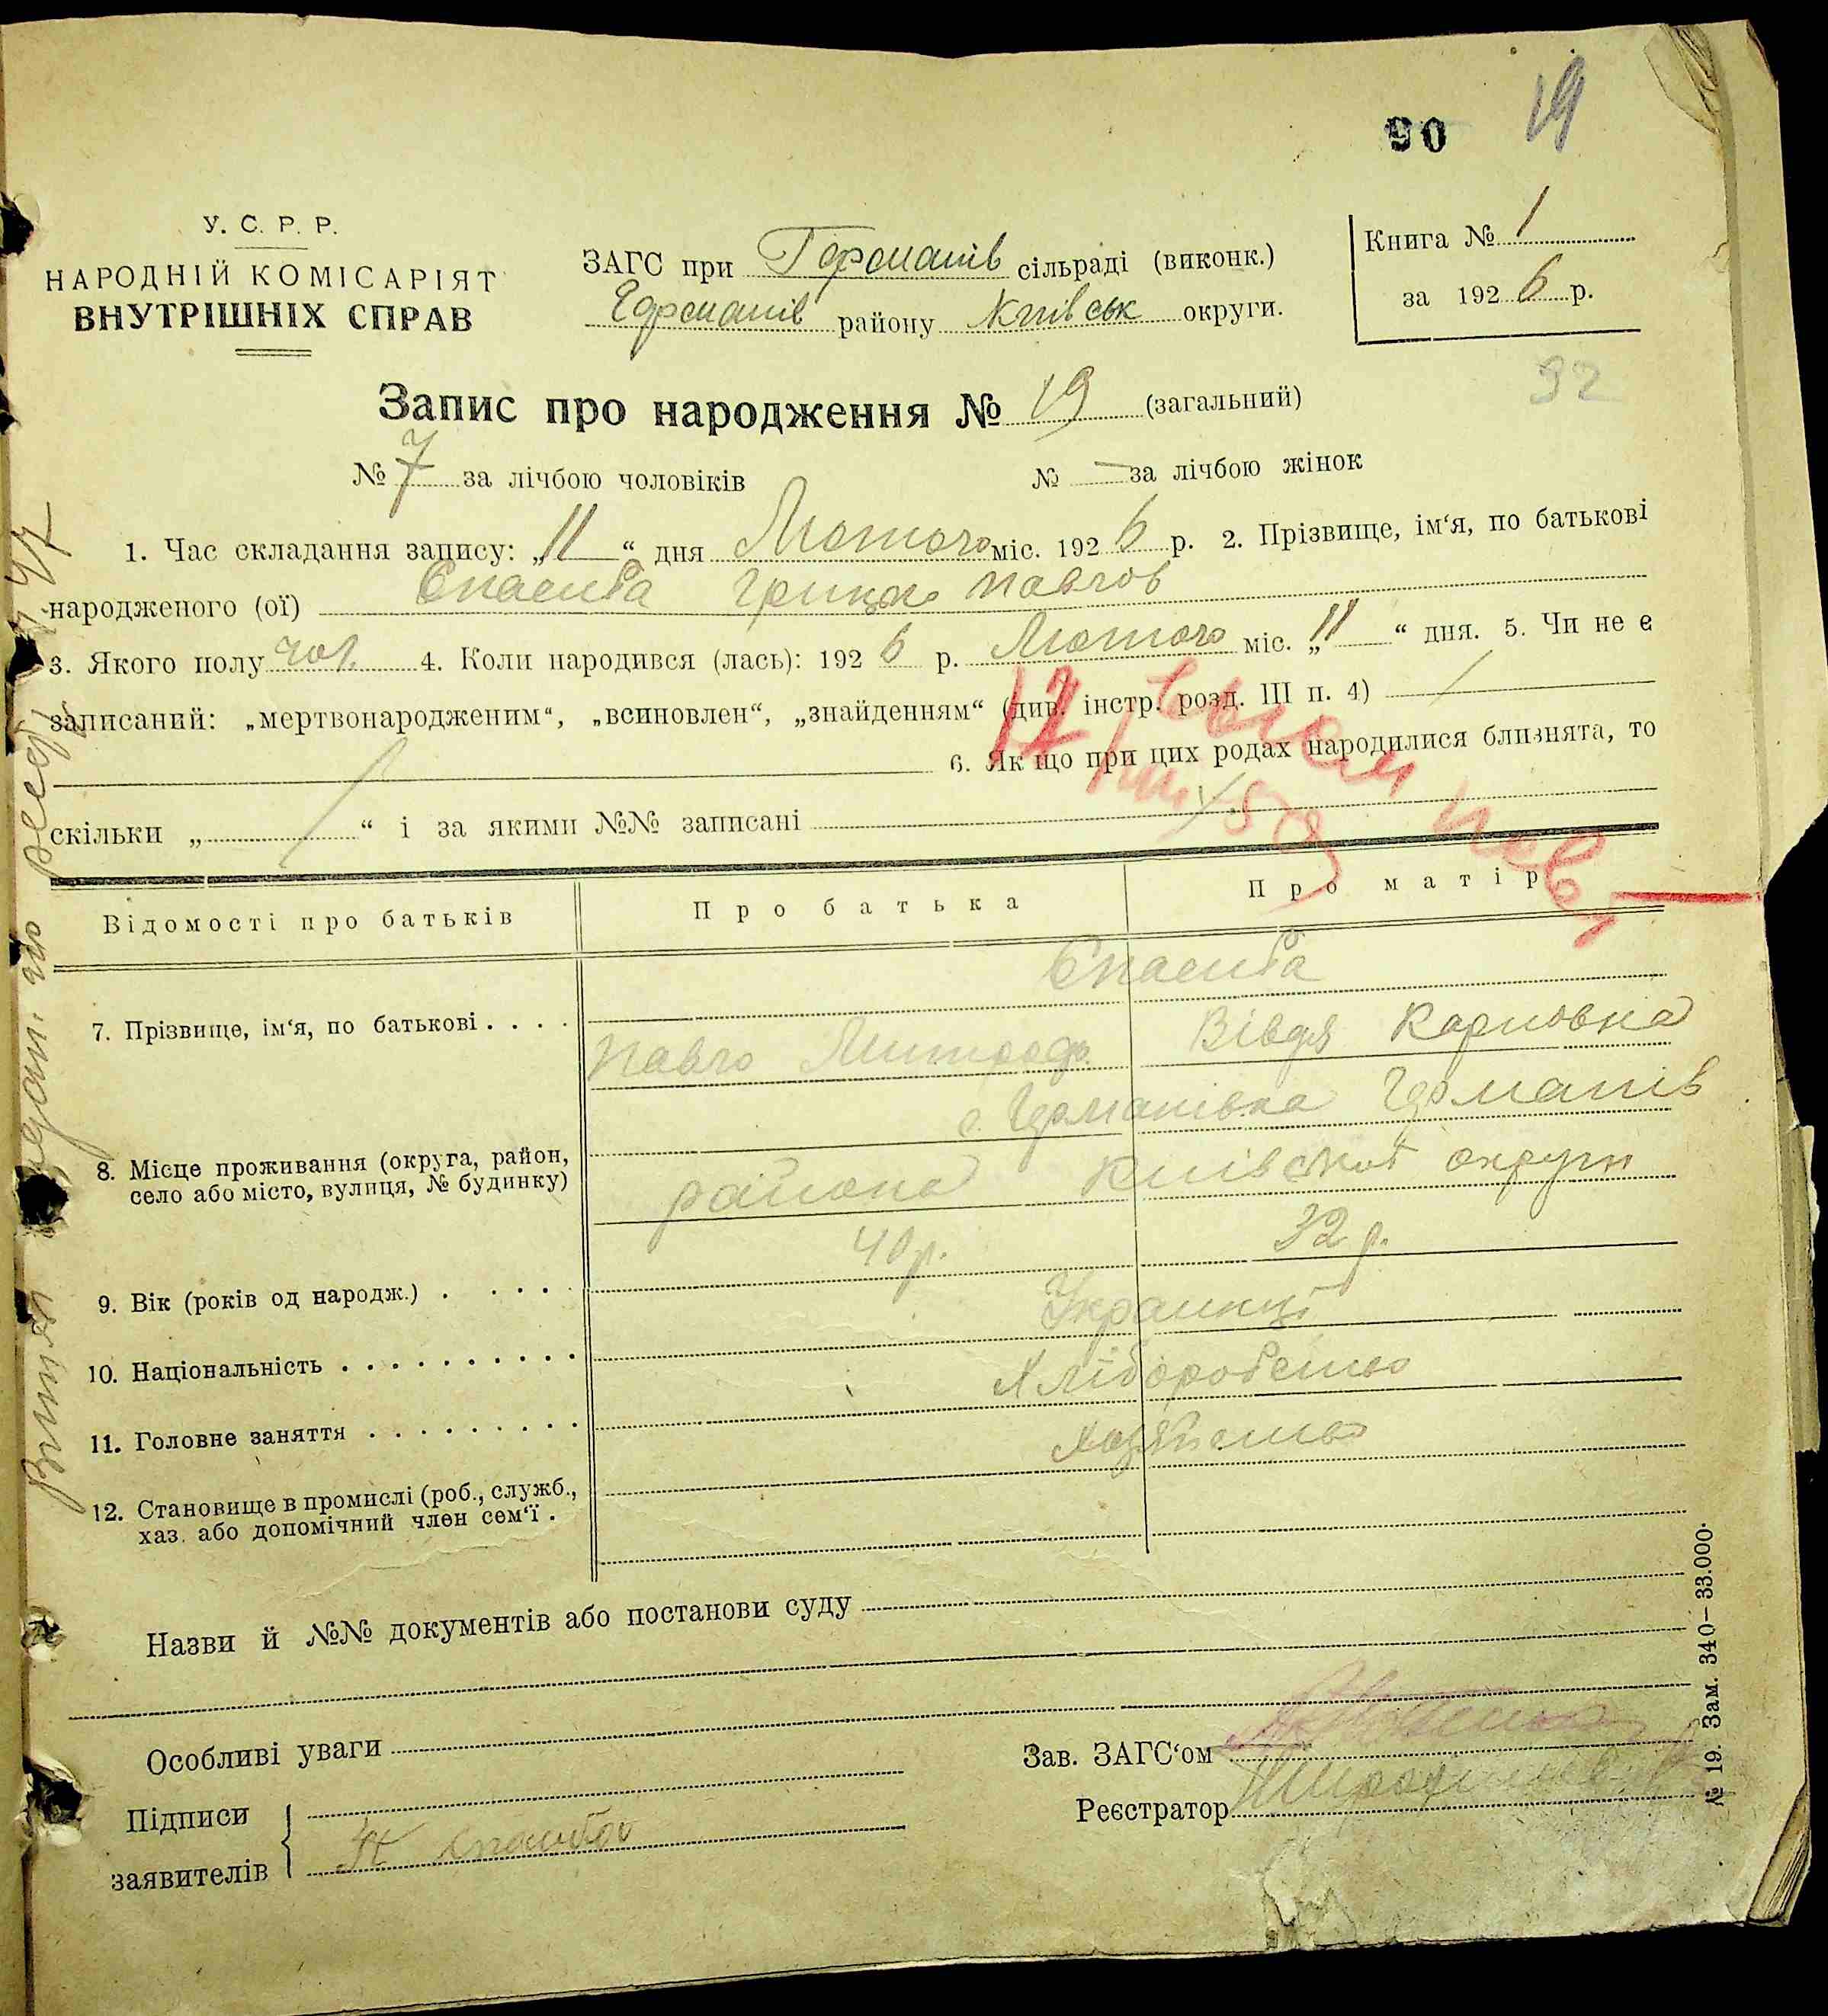 90 19
У. С. Р. Р.
НАРОДНІЙ КОМІСАРІЯТ
ВНУТРІШНІХ СПРАВ
ЗАГС при Германів сільраді (виконк.)
Германів району Київськ округи.
Книга № 1
за 1926 р.
92
Запис про народження № 19 (загальний)
№ 7 за лічбою чоловіків № — за лічбою жінок
1. Час складання запису: „11“ дня Лютого міс. 1926 р. 2. Прізвище, ім‘я, по батькові
народженого (ої) Спасиба Грицко Павлов
3. Якого полу чол. 4. Коли народився (лась): 1926 р. Лютого міс. „11“ дня. 5. Чи не є
записаний: „мертвонародженим“, „всиновлен“, „знайденням“ (див. інстр. розд. III п. 4)
6. Якщо при цих родах народилися близнята, то
скільки „ “ і за якими №№ записані
12
Відомості про батьків Про батька Про матір
7. Прізвище, ім‘я, по батькові . . . .
Спасиба
Павло Митроф. Вівдя Карповна
8. Місце проживання (округа, район,
село або місто, вулиця, № будинку)
с. Германівка Германів
района Київської округи
9. Вік (років од народж.) . . . . 40 р. 32 р.
10. Національність . . . . . . . . . . Украинці
11. Головне заняття . . . . . . . . . Хліборобство
12. Становище в промислі (роб., служб.,
хаз. або допомічний член сем‘ї .
Назви й №№ документів або постанови суду
Особливі уваги
Зав. ЗАГС‘ом
Реєстратор
Підписи
заявителів
Спасиба
№ 19. Зам. 340—33.000.